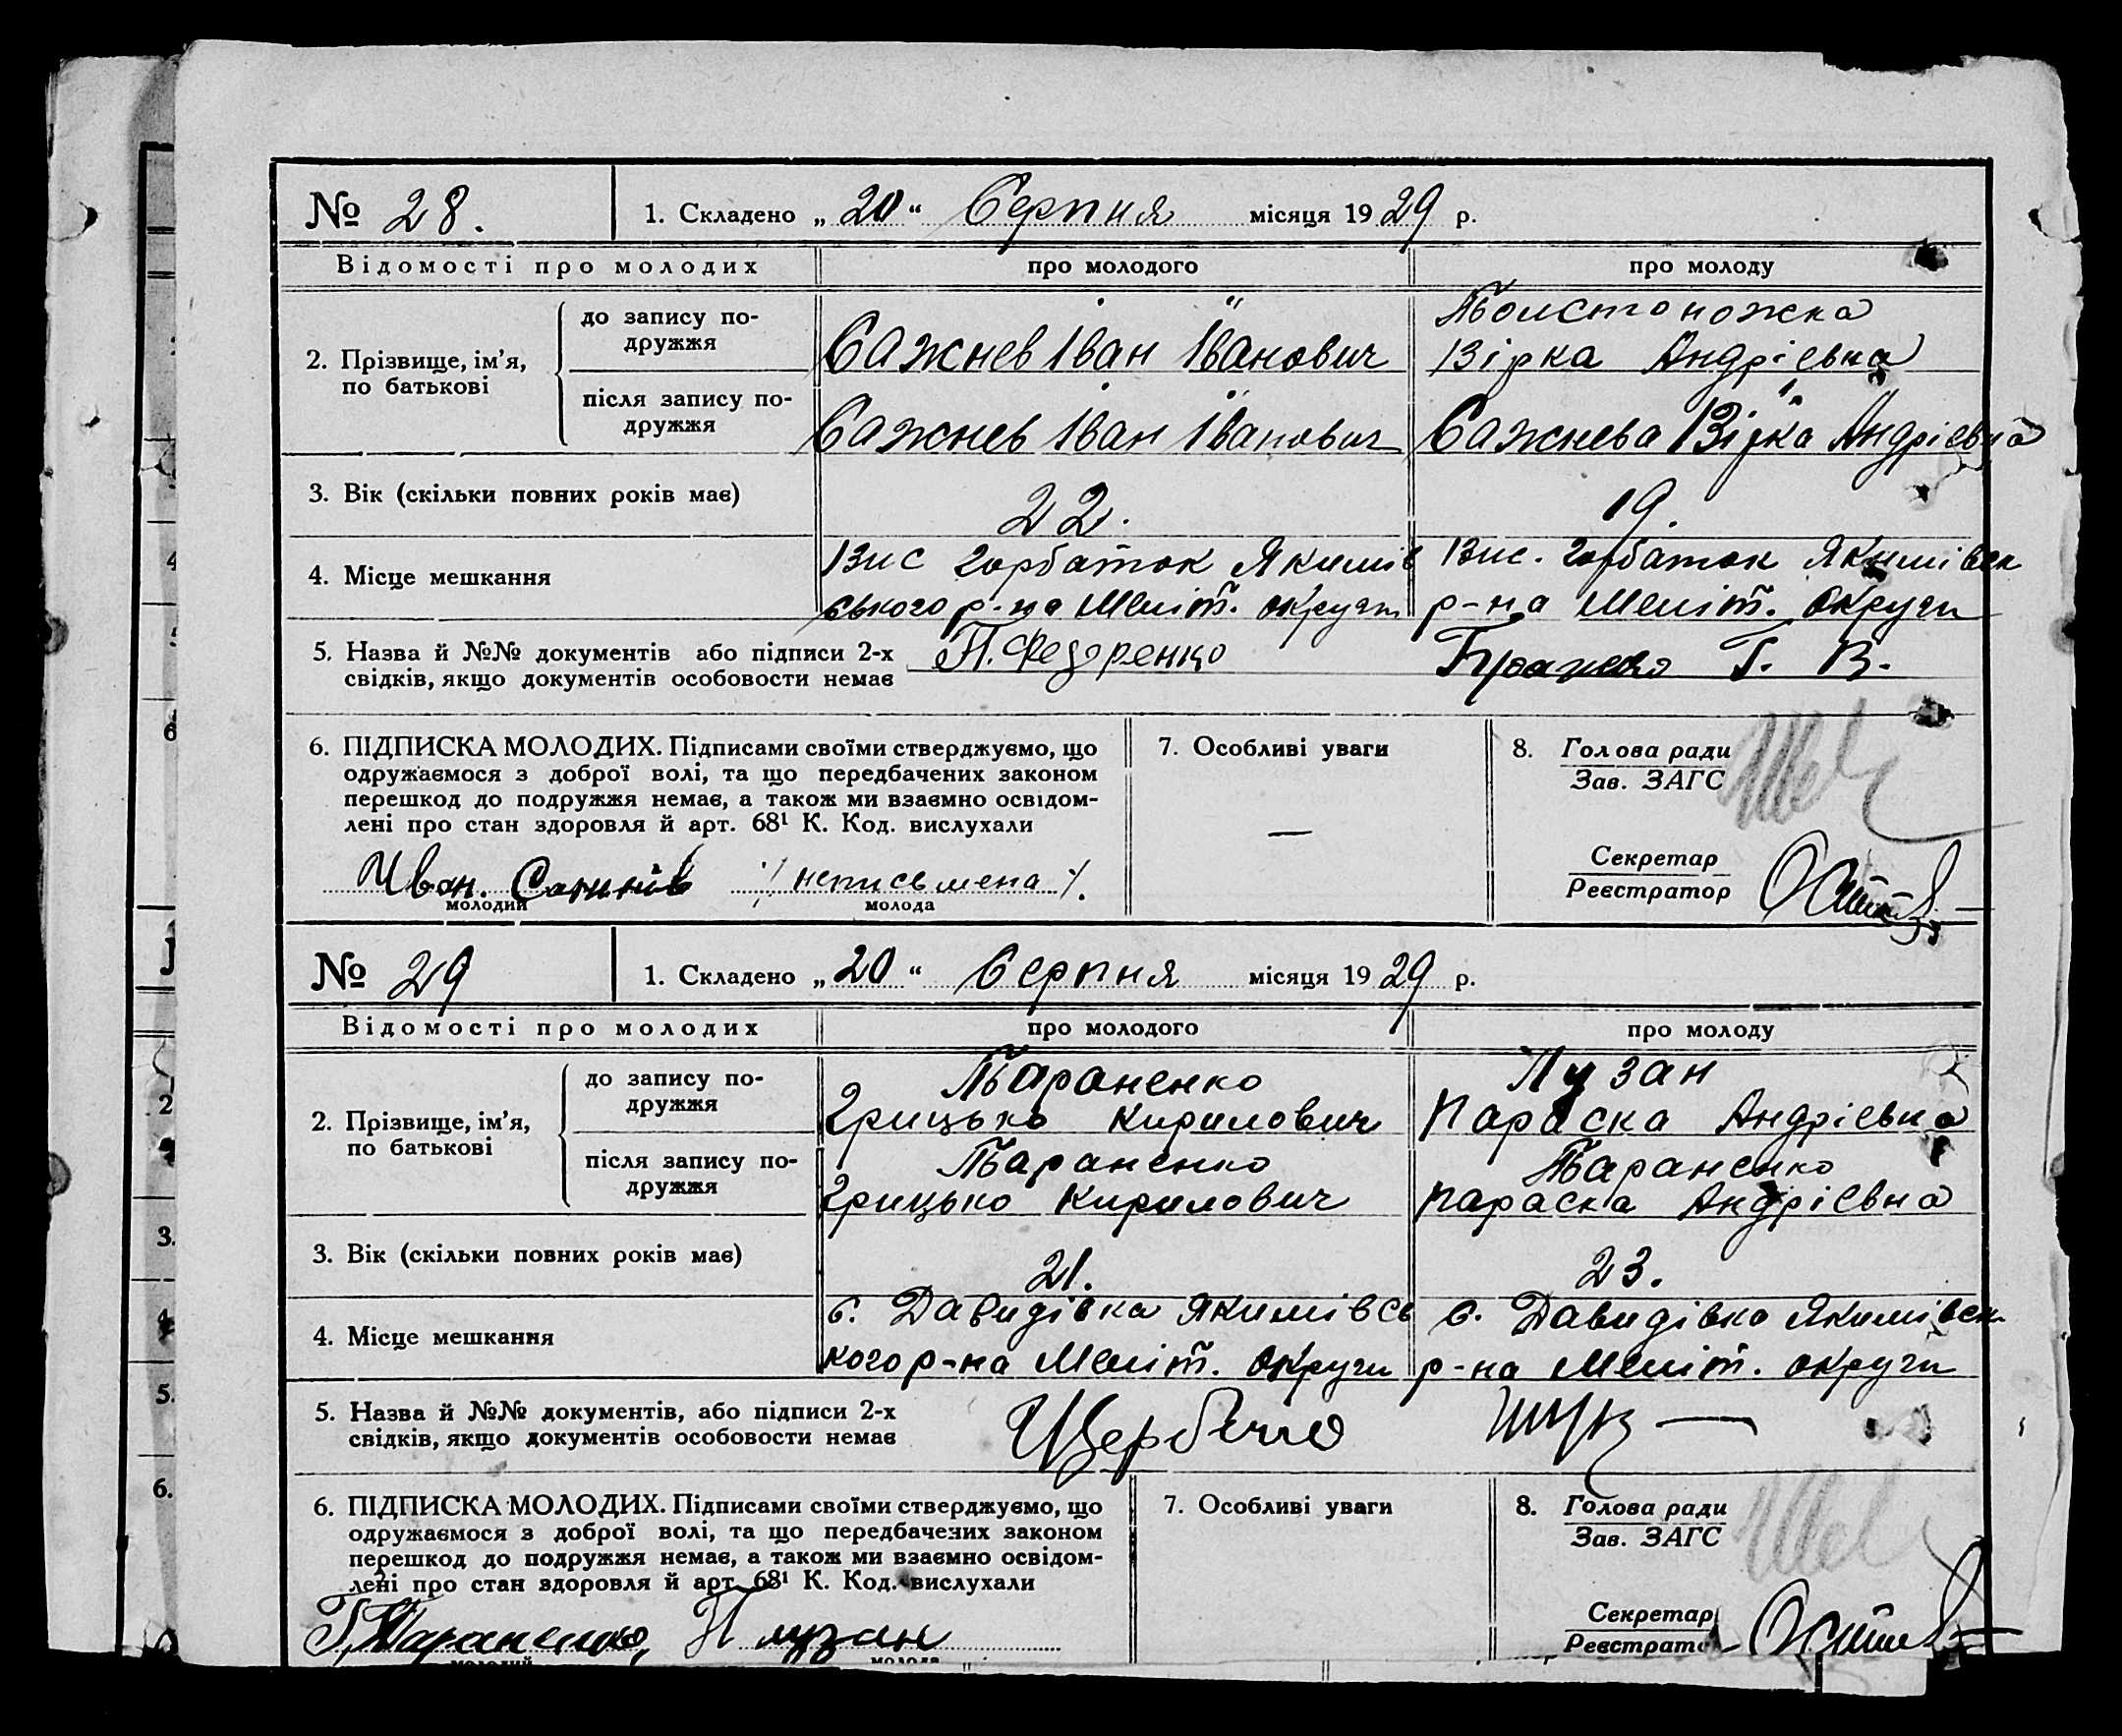 № 28. 1. Складено „20“ Серпня місяця 1929 р.
Відомості про молодих про молодого про молоду
2. Прізвище, ім’я, по батькові
до запису подружжя
Сажнев Іван Іванович
Товстоножка
Вірка Андрієвна
після запису подружжя
Сажнев Іван Іванович
Сажнева Вірка Андрієвна
3. Вік (скільки повних років має) 22. 19.
4. Місце мешкання
Вис Горбаток Якимів
ського р-на Меліт. округи
Вис. Горбаток Якимівськ
р-на Меліт. Округи
5. Назва й №№ документів або підписи 2-х
свідків, якщо документів особовости немає
П. Федоренко
Г. В.
6. ПІДПИСКА МОЛОДИХ. Підписами своїми стверджуємо, що
одружаємося з доброї волі, та що передбачених законом
перешкод до подружжя немає, а також ми взаємно освідом-
лені про стан здоровля й арт. 68¹ К. Код. вислухали
Иван.
молодий
/неписьмена/.
молода
7. Особливі уваги
—
8. Голова ради
Зав. ЗАГС
Секретар
Реєстратор
№ 29 1. Складено „20“ Серпня місяця 1929 р.
Відомості про молодих про молодого про молоду
2. Прізвище, ім’я, по батькові
до запису подружжя
Тараненко
Грицько Кирилович
Лузан
Параска Андрієвна
після запису подружжя
Тараненко
Грицько Кирилович
Тараненко
Параска Андрієвна
3. Вік (скільки повних років має) 21. 23.
4. Місце мешкання
с. Давидівка Якимівсь
кого р-на Меліт. Округи
с. Давидівка Якимівськ
р-на Меліт. округи
5. Назва й №№ документів, або підписи 2-х
свідків, якщо документів особовости немає
6. ПІДПИСКА МОЛОДИХ. Підписами своїми стверджуємо, що
одружаємося з доброї волі, та що передбачених законом
перешкод до подружжя немає, а також ми взаємно освідом-
лені про стан здоровля й арт. 68¹ К. Код. вислухали
Г. Тараненко,
молодий
П Лузан
молода
7. Особливі уваги
8. Голова ради
Зав. ЗАГС
Секретар
Реєстратор